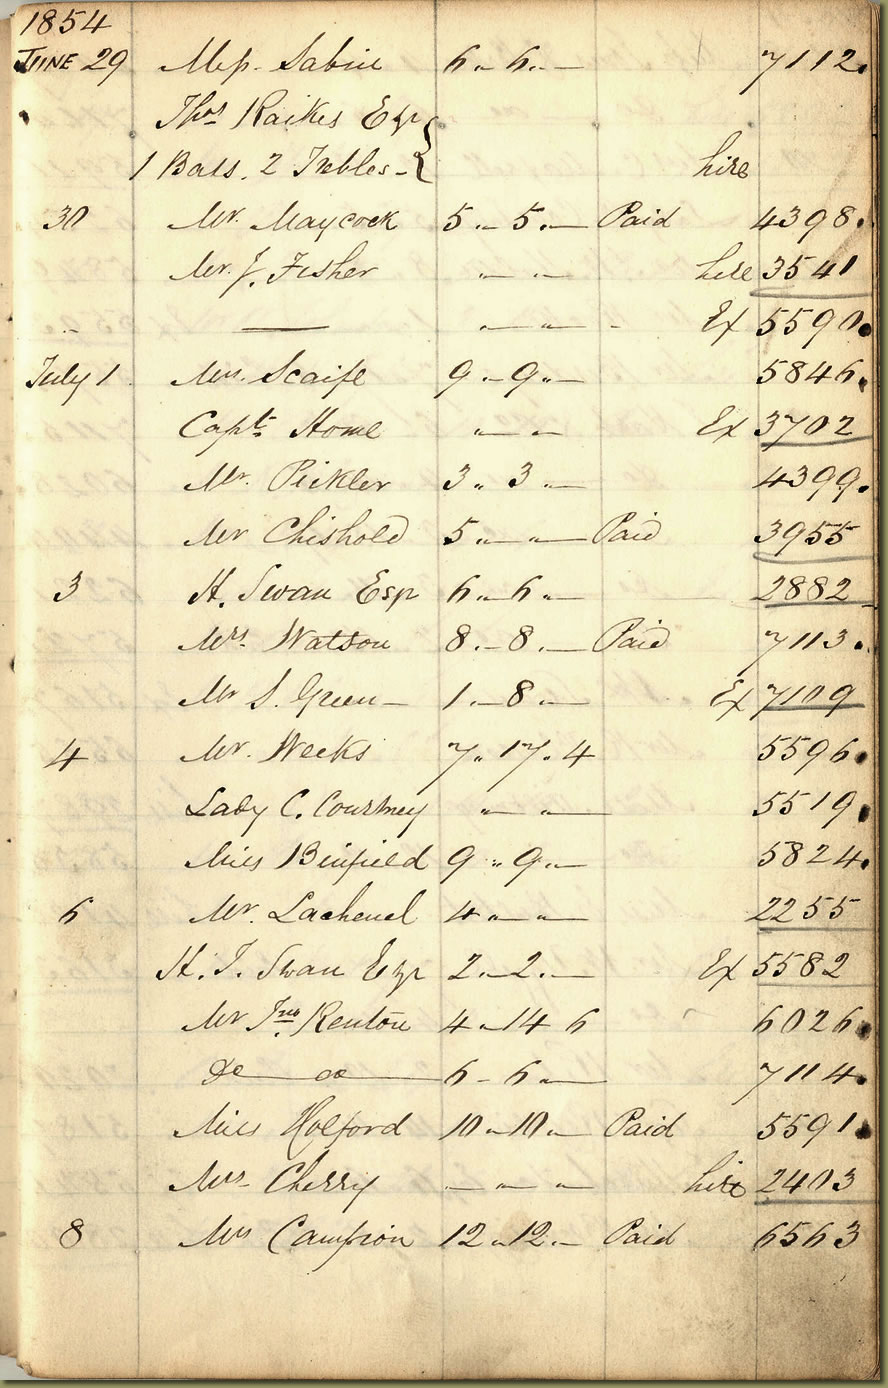 1854
JUNE 29 Miss Sabine 6 " 6 " — 7112.
Thos Raikes Esqr
1 Bass. 2 Trebles - hire
30 Mr. Maycock 5 " 5 " — Paid 4398.
Mr. J. Fisher " " — hire 3541
" — " " - Ex 5590.
July 1 Mrs. Scaife 9 " 9 " — 5846.
Captn Home " " — Ex 3702
Mr. Pickler 3 " 3 " — 4399.
Mr Chishold 5 " — " — Paid 3955
3 H. Swan Esqr 6 " 6 " — 2882
Mrs. Watson 8 " 8 " — Paid 7113.
Mr S. Green — 1 " 8 " — Ex 7109
4 Mr. Weeks 7 " 17 " 4 5596.
Lady C. Courtney " " — 5519.
Miss Binfield 9 " 9 " — 5824.
6 Mr. Lachenel 4 " — " — 2255
H. T. Swan Esqr 2 " 2 " — Ex 5582
Mr Jno. Renton 4 " 14 6 6026.
Do — do — 6 - 6 " — 7114.
Miss Holford 10 " 10 " — Paid 5591.
Mrs Cherry — " — " — hire 2403
8 Mrs Campion 12 " 12 " — Paid 6563